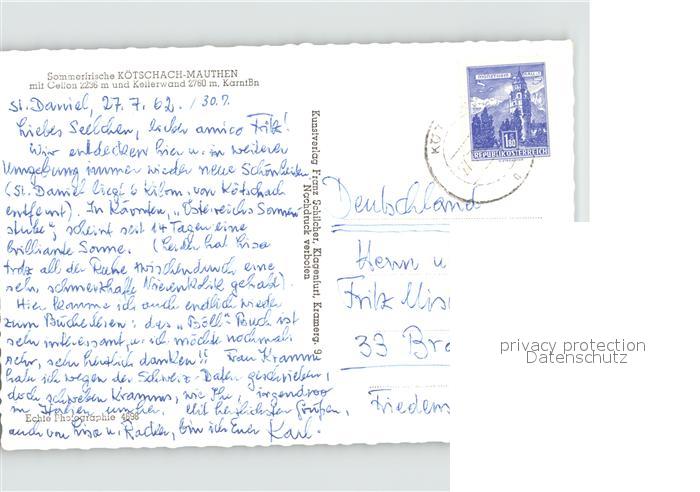 Sommerfrische KÖTSCHACH-MAUTHEN
mit Cellon 2236 m und Kellerwand 2760 m, Karntßn
St. Daniel, 27.7.62. /30.7.
Liebes Seelchen, lieber amico Fritz!
Wir entdecken hier u. in weiterer
Umgebung immer wieder neue Schönheiten
(St. Daniel liegt 6 Kilom. von Kötschach
entfernt). In Kärnten, "Österreichs Sonnen-
stube", scheint seit 14 Tagen eine
brilliante Sonne. (Leider hat Lisa
trotz all der Ruhe zwischendurch eine
sehr schmerzhafte Nierenkolik gehabt).
Hier komme ich auch endlich wieder
zum Bücherlesen: das "Böll"-Buch ist
sehr interessant, u. ich möchte nochmals
sehr, sehr herzlich danken!! Frau Kramm
habe ich wegen der Schweiz-Daten geschrieben,
doch schweben Kramms, wie Ihr, irgendwo
in Italien umher. Mit herzlichsten Grüßen,
Echte Photographie 4698
auch von Lisa u. bin ich Euer Karl.
Kunstverlag Franz Schilcher, Klagenfurt, Kramerg. 9
Nachdruck verboten
1.80
REPUBLIK ÖSTERREICH
KÖT
Deutschland
Herrn u
Fritz
33 Bra
Friedens
privacy protection
Datenschutz